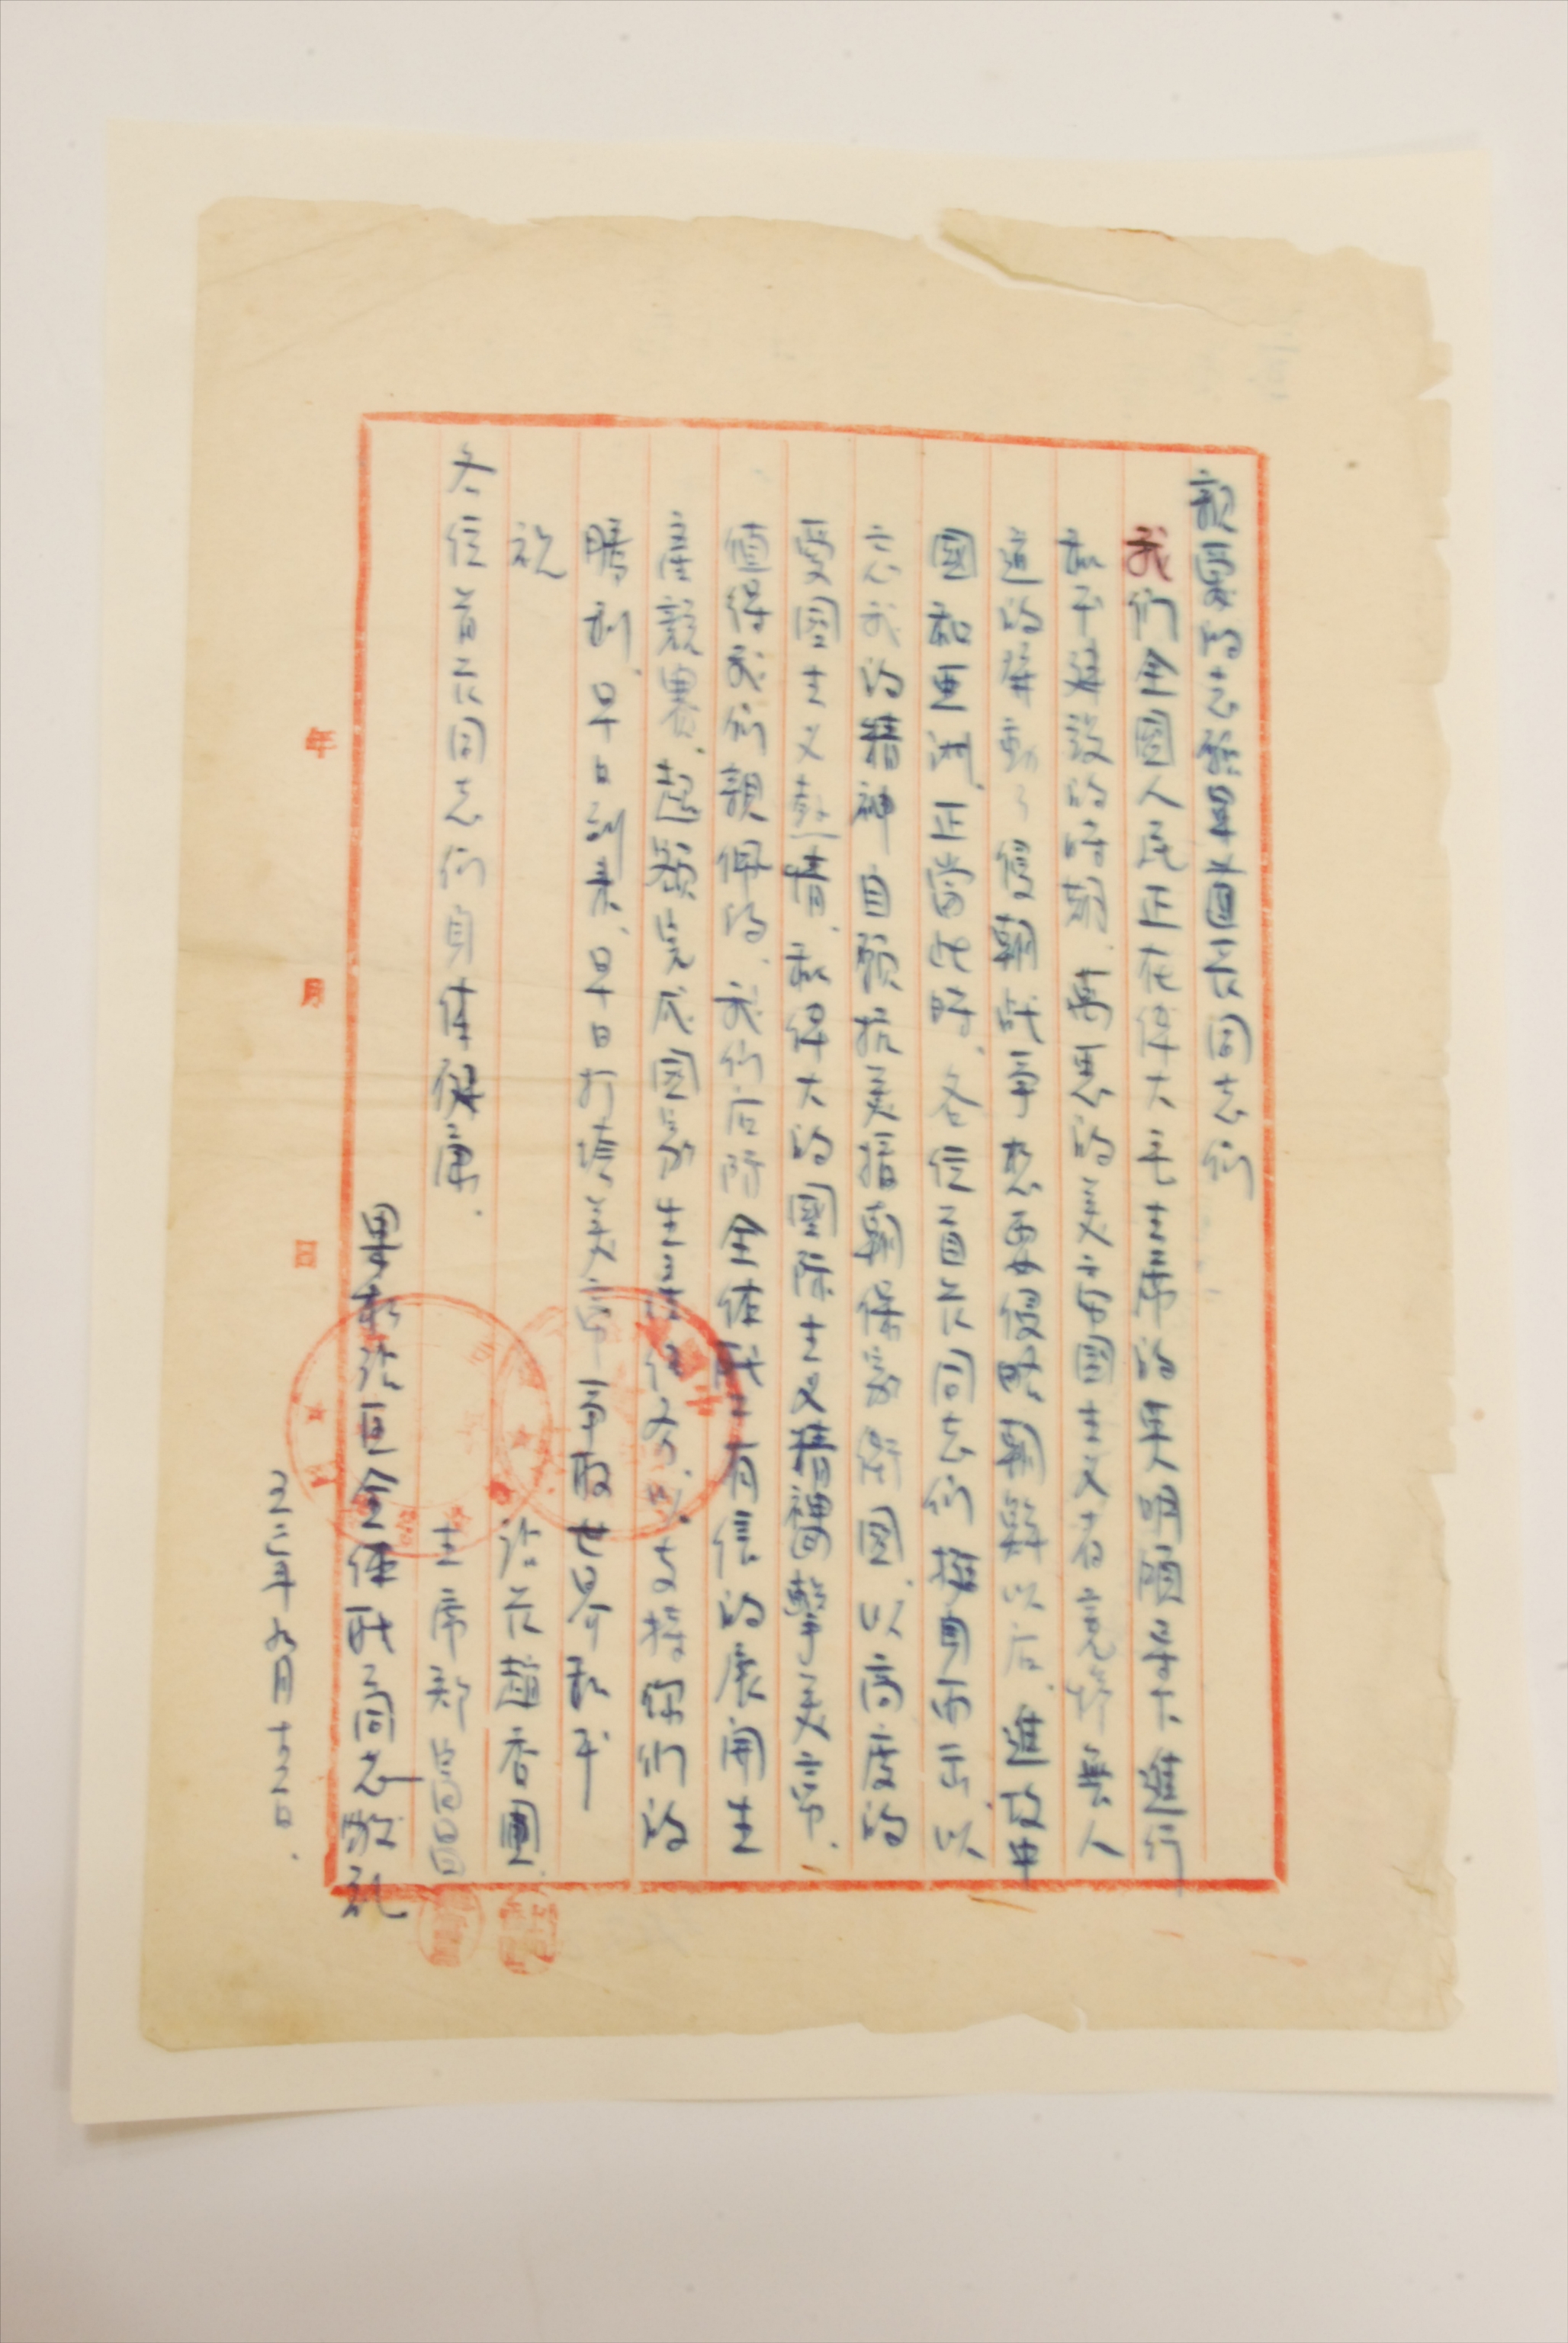 親愛的志願軍首長同志们
我们全國人民正在偉大毛主席的英明領导下進行
和平建設的時期、萬惡的美帝國主义者竟将無人
道的發動了侵朝战爭想要侵略朝鮮以后、進攻中
國和亜洲、正當此時、各位首长同志们挺身而出、以
忘我的精神自願抗美援朝保家衛國、以高度的
愛國主义熱情、和偉大的國际主义精神回擊美帝、
值得我们親佩的、我们后防全体战士有信的展開生
産競賽、超額完成国家生産任务、以支援你们的
勝利、早日到来、早日打垮美帝爭取世界和平
祝
各位首长同志们身体健康、
站长趙香圃
主席郑昌
站區全体職工同志敬礼
五三年九月十五日、
年 月 日